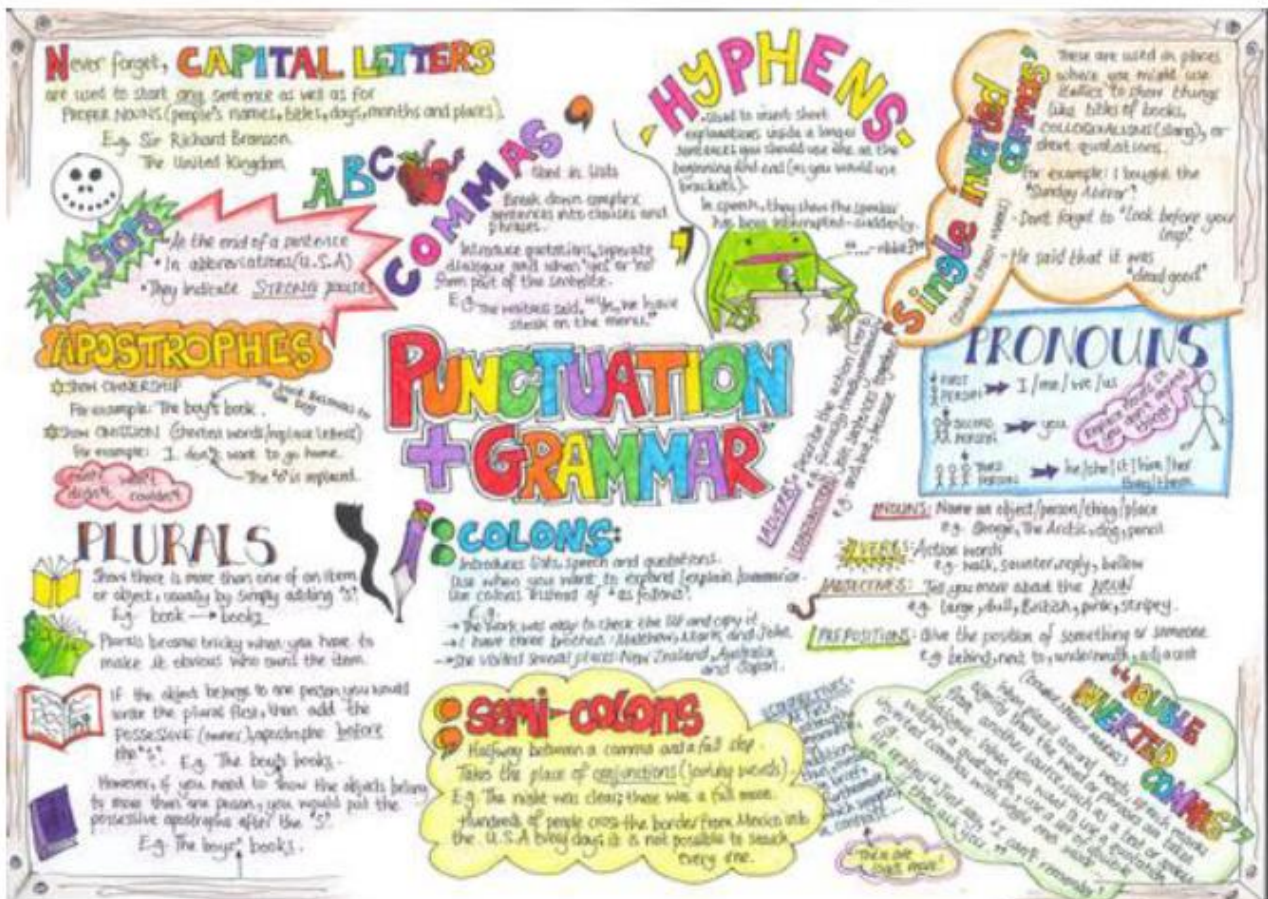 Never forget, CAPITAL LETTERS
are used to start any sentence as well as for
PROPER NOUNS (people's names, titles, days, months and places).
E.g. Sir Richard Branson
The United Kingdom
ABC
FULL STOPS
• At the end of a sentence
• In abbreviations (U.S.A)
• They indicate STRONG pauses
COMMAS
Used in lists
Break down complex
sentences into clauses and
phrases.
Introduce quotations, separate
dialogue and when 'yes' or 'no'
form part of the sentence.
E.g. The waitress said, "Yes, we have
steak on the menu."
-HYPHENS-
Used to insert short
explanations inside a longer
sentence, you should use one at the
beginning and end (as you would use
brackets).
In speech, they show the speaker
has been interrupted - suddenly.
'Single inverted commas'
These are used in places
where you might use
italics to show things
like titles of books,
COLLOQUIALISMS (slang), or
short quotations.
For example: I bought the
"Sunday Mirror"
- Don't forget to "look before you
leap".
- He said that it was
"dead good"
APOSTROPHES
Show OWNERSHIP
The book belongs to
the boy
For example: The boy's book.
Show OMISSION (shortens words/replace letters)
For example: I don't want to go home.
The "o" is replaced.
didn't couldn't
PUNCTUATION
+ GRAMMAR
ADVERBS: Describe the action
e.g. and, but, because
PRONOUNS
FIRST PERSON I/me/we/us
SECOND PERSON you
THIRD PERSON he/she/it/him/her
they/them
NOUNS: Name an object/person/thing/place
e.g. George, The Arctic, dog, pencil
VERBS: Action words
e.g. walk, saunter, reply, bellow
ADJECTIVES: Tell you more about the NOUN
e.g. large, dull, British, pink, stripey.
PREPOSITIONS: Give the position of something or someone
e.g. behind, next to, underneath, adjacent
PLURALS
Show there is more than one of an item
or object, usually by simply adding "S".
E.g. book → books
Plurals become tricky when you have to
make it obvious who owns the item.
If the object belongs to one person you would
write the plural first, then add the
POSSESSIVE (owner) apostrophe before
the "s". E.g. The boy's books.
However, if you need to show the objects belong
to more than one person, you would put the
possessive apostrophe after the "S".
E.g. The boys' books.
COLONS:
Introduces lists, speech and quotations.
Use when you want to expand/explain/summarise.
Use colons instead of "as follows".
E.g.
→ The work was easy to check the list and copy it.
→ I have three brothers: Matthew, Mark and John.
→ She visited several places: New Zealand, Australia
and Japan.
SEMI-COLONS
Halfway between a comma and a full stop.
Takes the place of conjunctions (joining words).
E.g. The night was clear; there was a full moon.
Hundreds of people cross the border from Mexico into
the U.S.A every day; it is not possible to search
every one.
There are
loads more!
"DOUBLE
INVERTED
COMMAS"